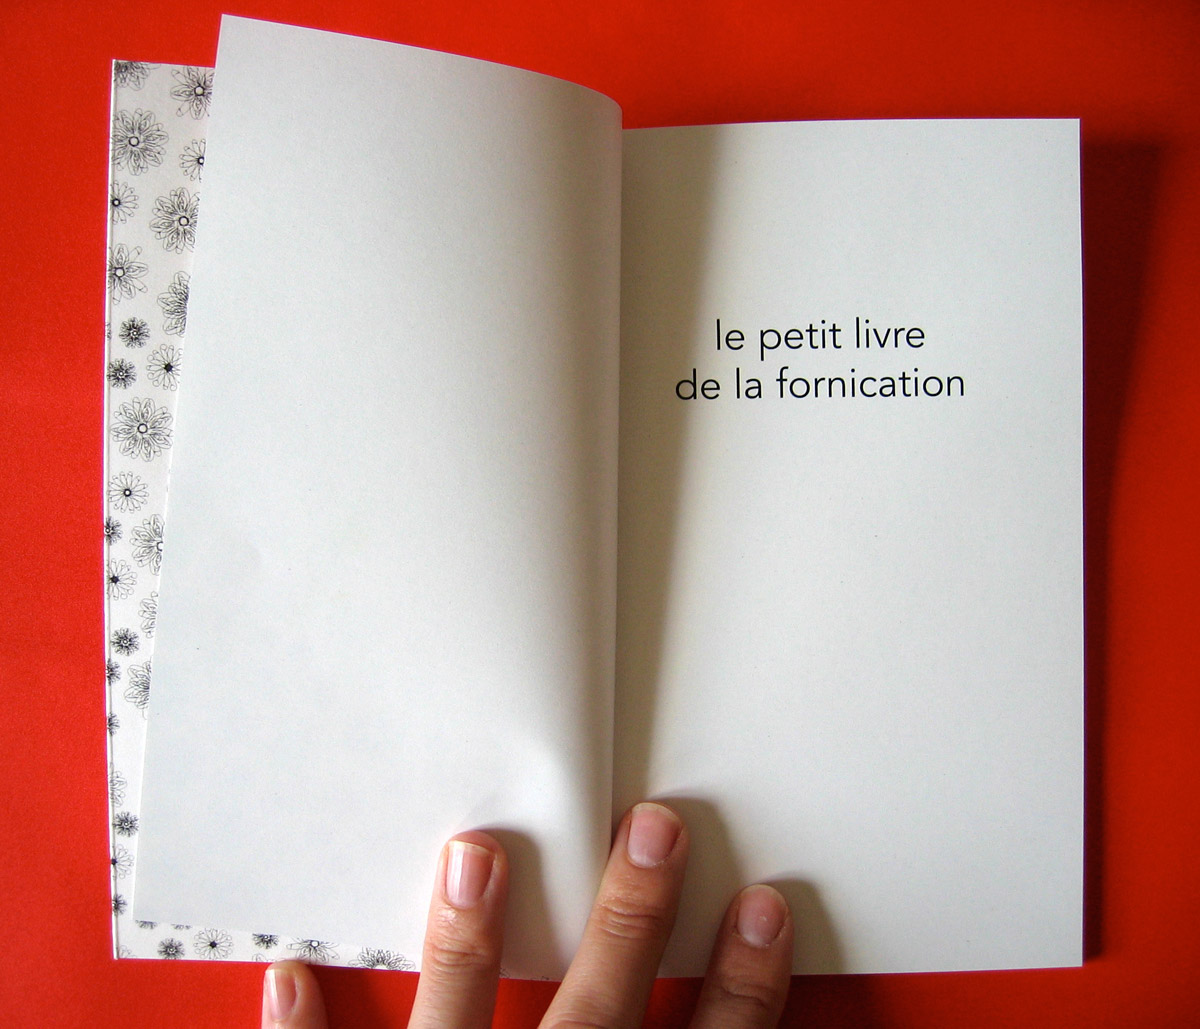 le petit livre
de la fornication